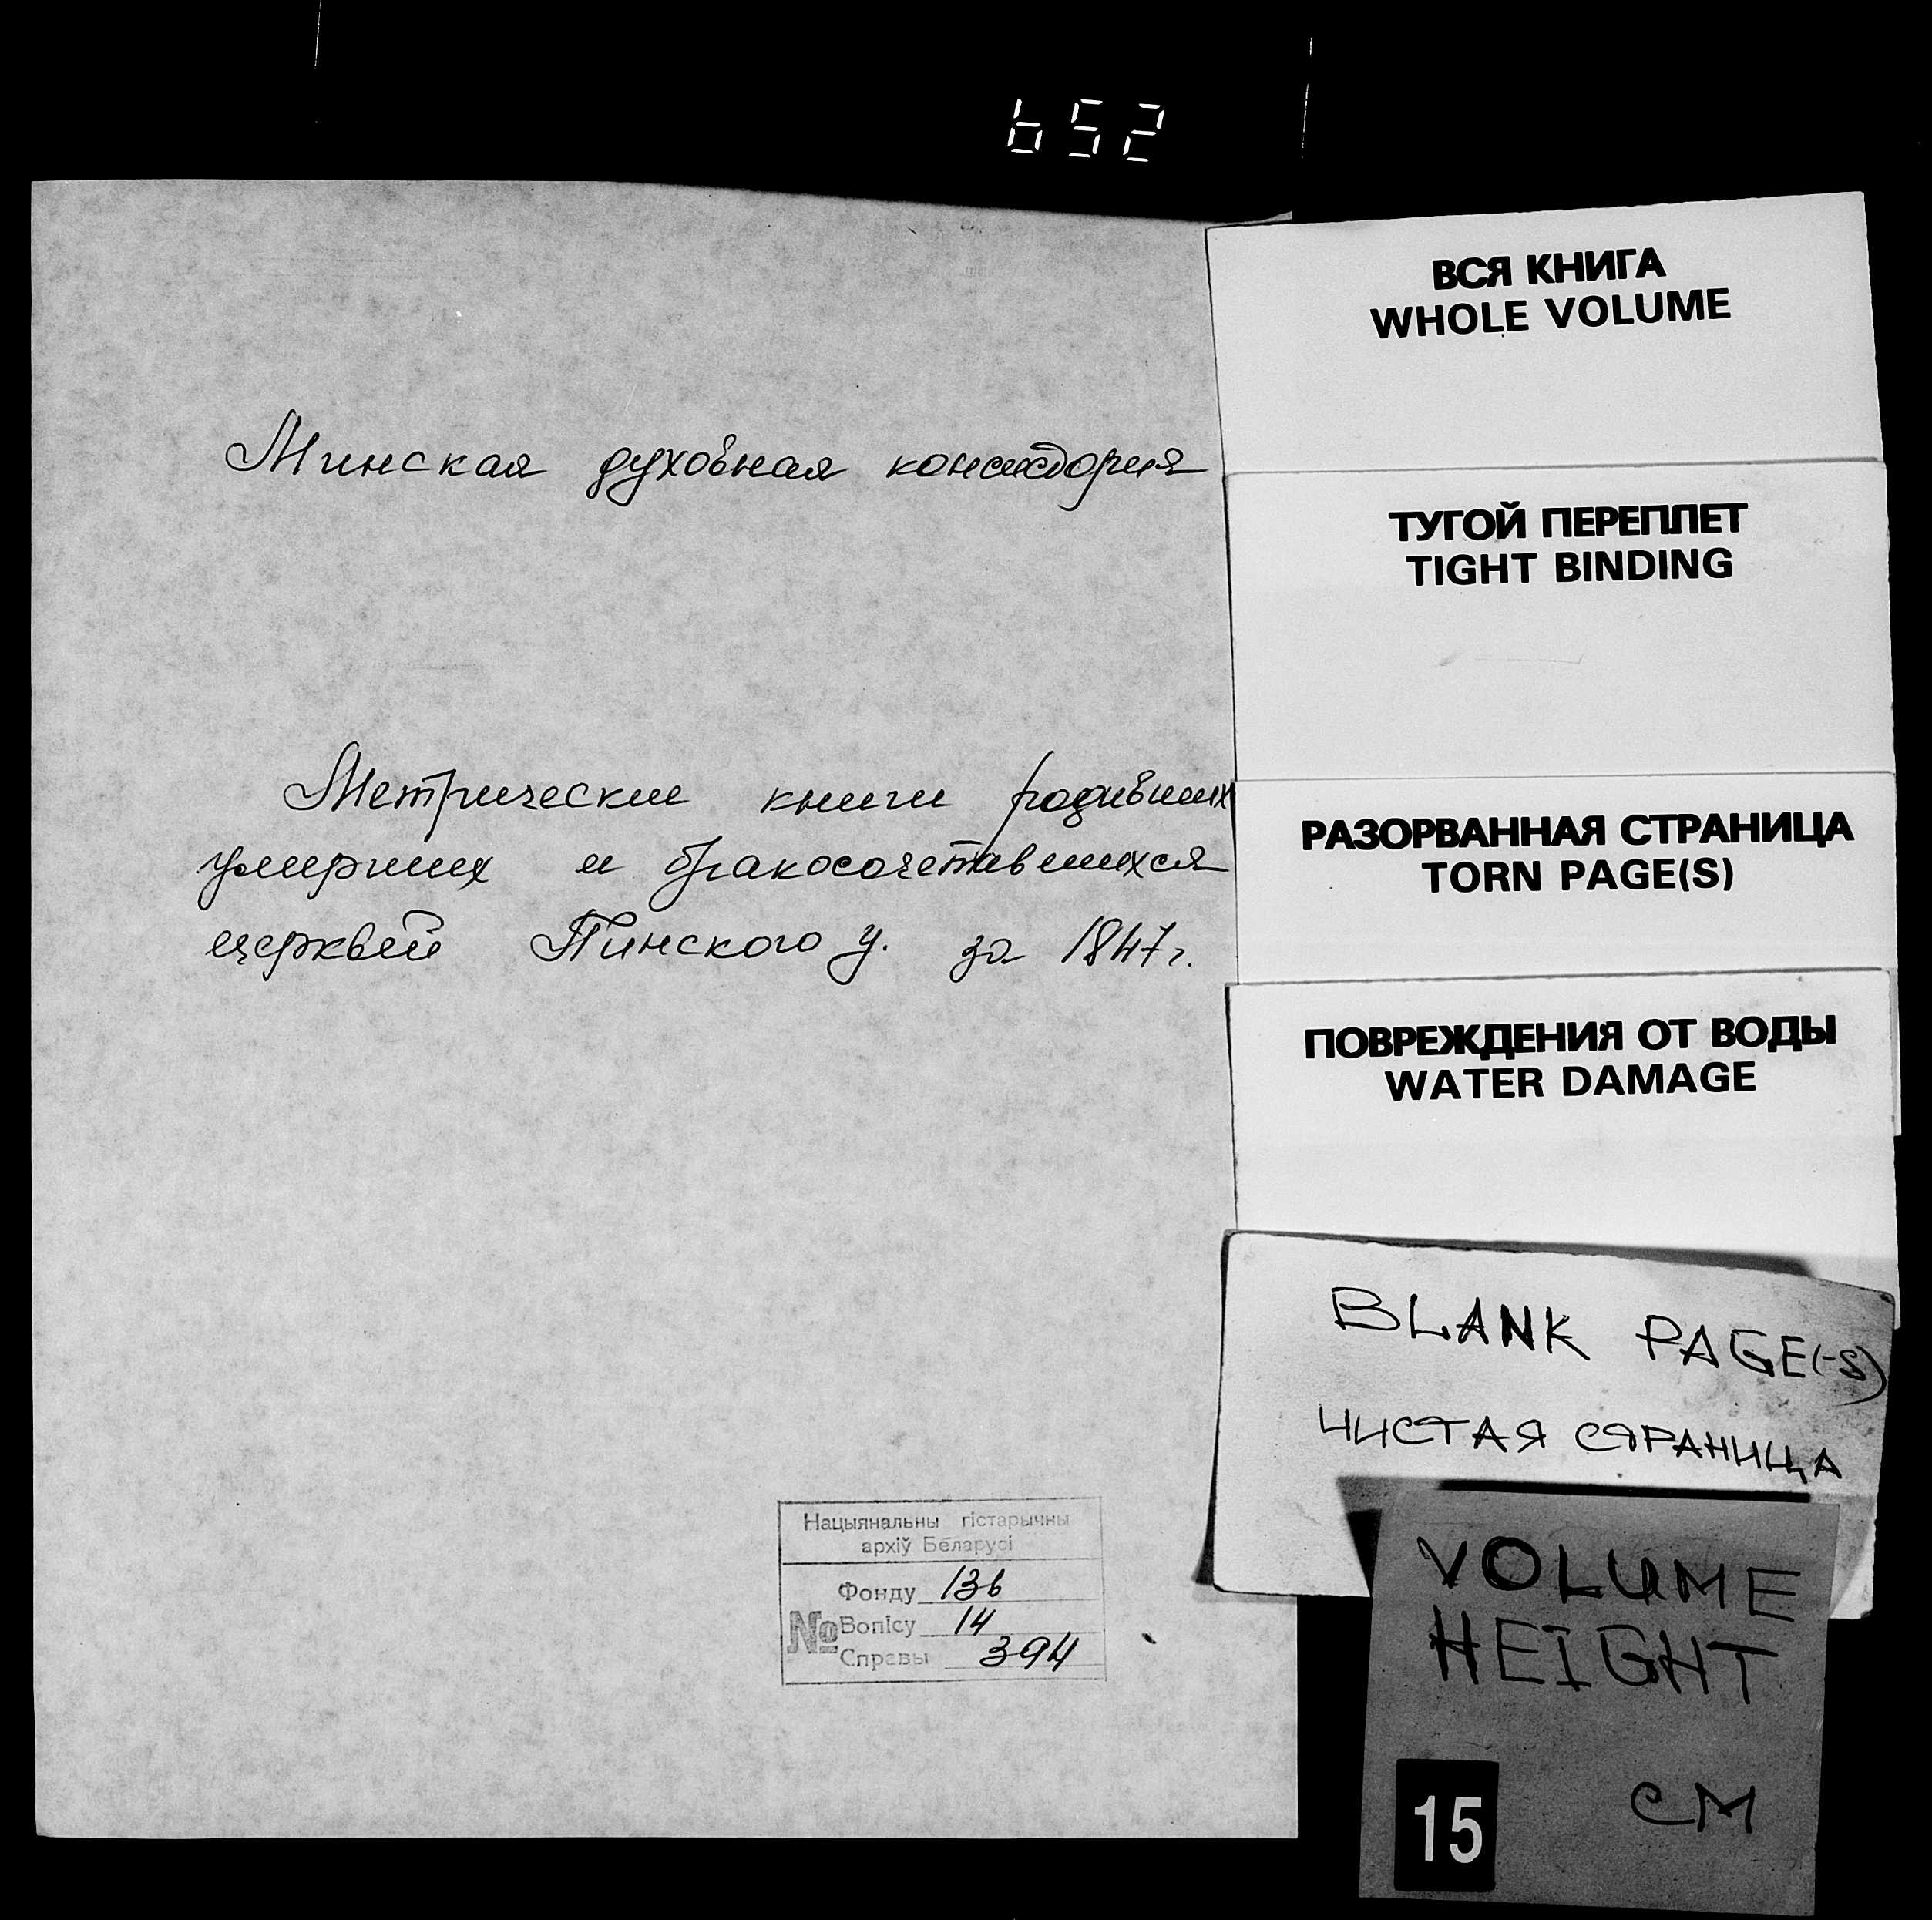 652
Минская духовная консистория
Метрические книги родивших
умерших и бракосочетавшихся
церквей Пинского у. за 1847 г.
Нацыянальны гістарычны
архіў Беларусі
Фонду 136
№ Вопісу 14
Справы 394
ВСЯ КНИГА
WHOLE VOLUME
ТУГОЙ ПЕРЕПЛЕТ
TIGHT BINDING
РАЗОРВАННАЯ СТРАНИЦА
TORN PAGE(S)
ПОВРЕЖДЕНИЯ ОТ ВОДЫ
WATER DAMAGE
BLANK PAGE(-S)
ЧИСТАЯ СТРАНИЦА
VOLUME
HEIGHT
15 CM